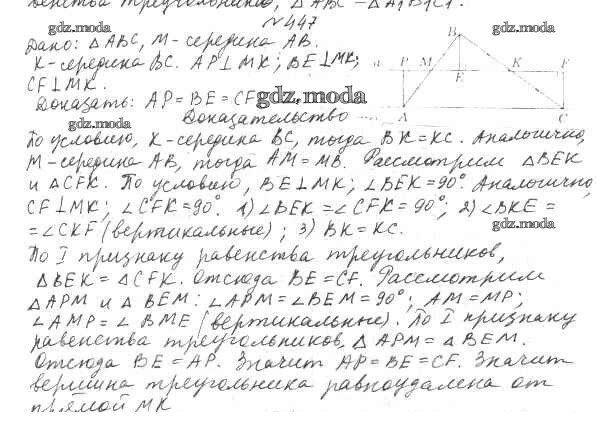 венства треугольников, △ABC = △A₁B₁C₁.
№ 447
gdz.moda gdz.moda
Дано: △ABC, M - середина AB.
K - середина BC. AP⊥MK; BE⊥MK;
CF⊥MK.
Доказать: AP = BE = CF gdz.moda
Доказательство
B
a P M K F
E
A C
По условию, K - середина BC, тогда BK = KC. Аналогично,
gdz.moda
M - середина AB, тогда AM = MB. Рассмотрим △BEK
и △CFK. По условию, BE⊥MK; ∠BEK = 90°. Аналогично
CF⊥MK; ∠CFK = 90°. 1) ∠BEK = ∠CFK = 90°; 2) ∠BKE =
= ∠CKF (вертикальные); 3) BK = KC.
gdz.moda
По I признаку равенства треугольников,
△BEK = △CFK. Отсюда BE = CF. Рассмотрим
△APM и △BEM: ∠APM = ∠BEM = 90°; AM = MP;
gdz.moda
∠AMP = ∠BME (вертикальные). По I признаку
равенства треугольников, △APM = △BEM.
gdz.moda
Отсюда BE = AP. Значит AP = BE = CF. Значит
вершина треугольника равноудалена от
прямой MK
gdz.moda